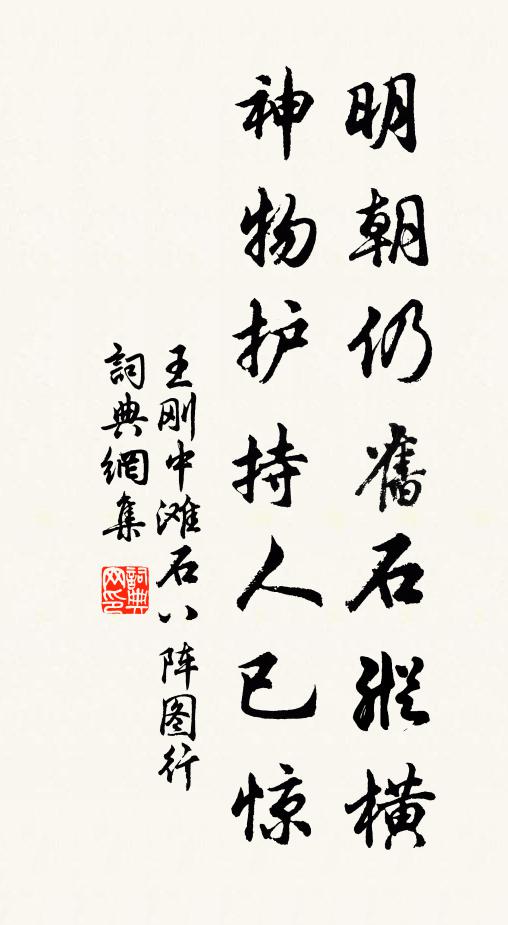 明朝仍舊石縱橫
神物护持人已惊
王刚中滩石八阵图行
詞典網集
詞典网印